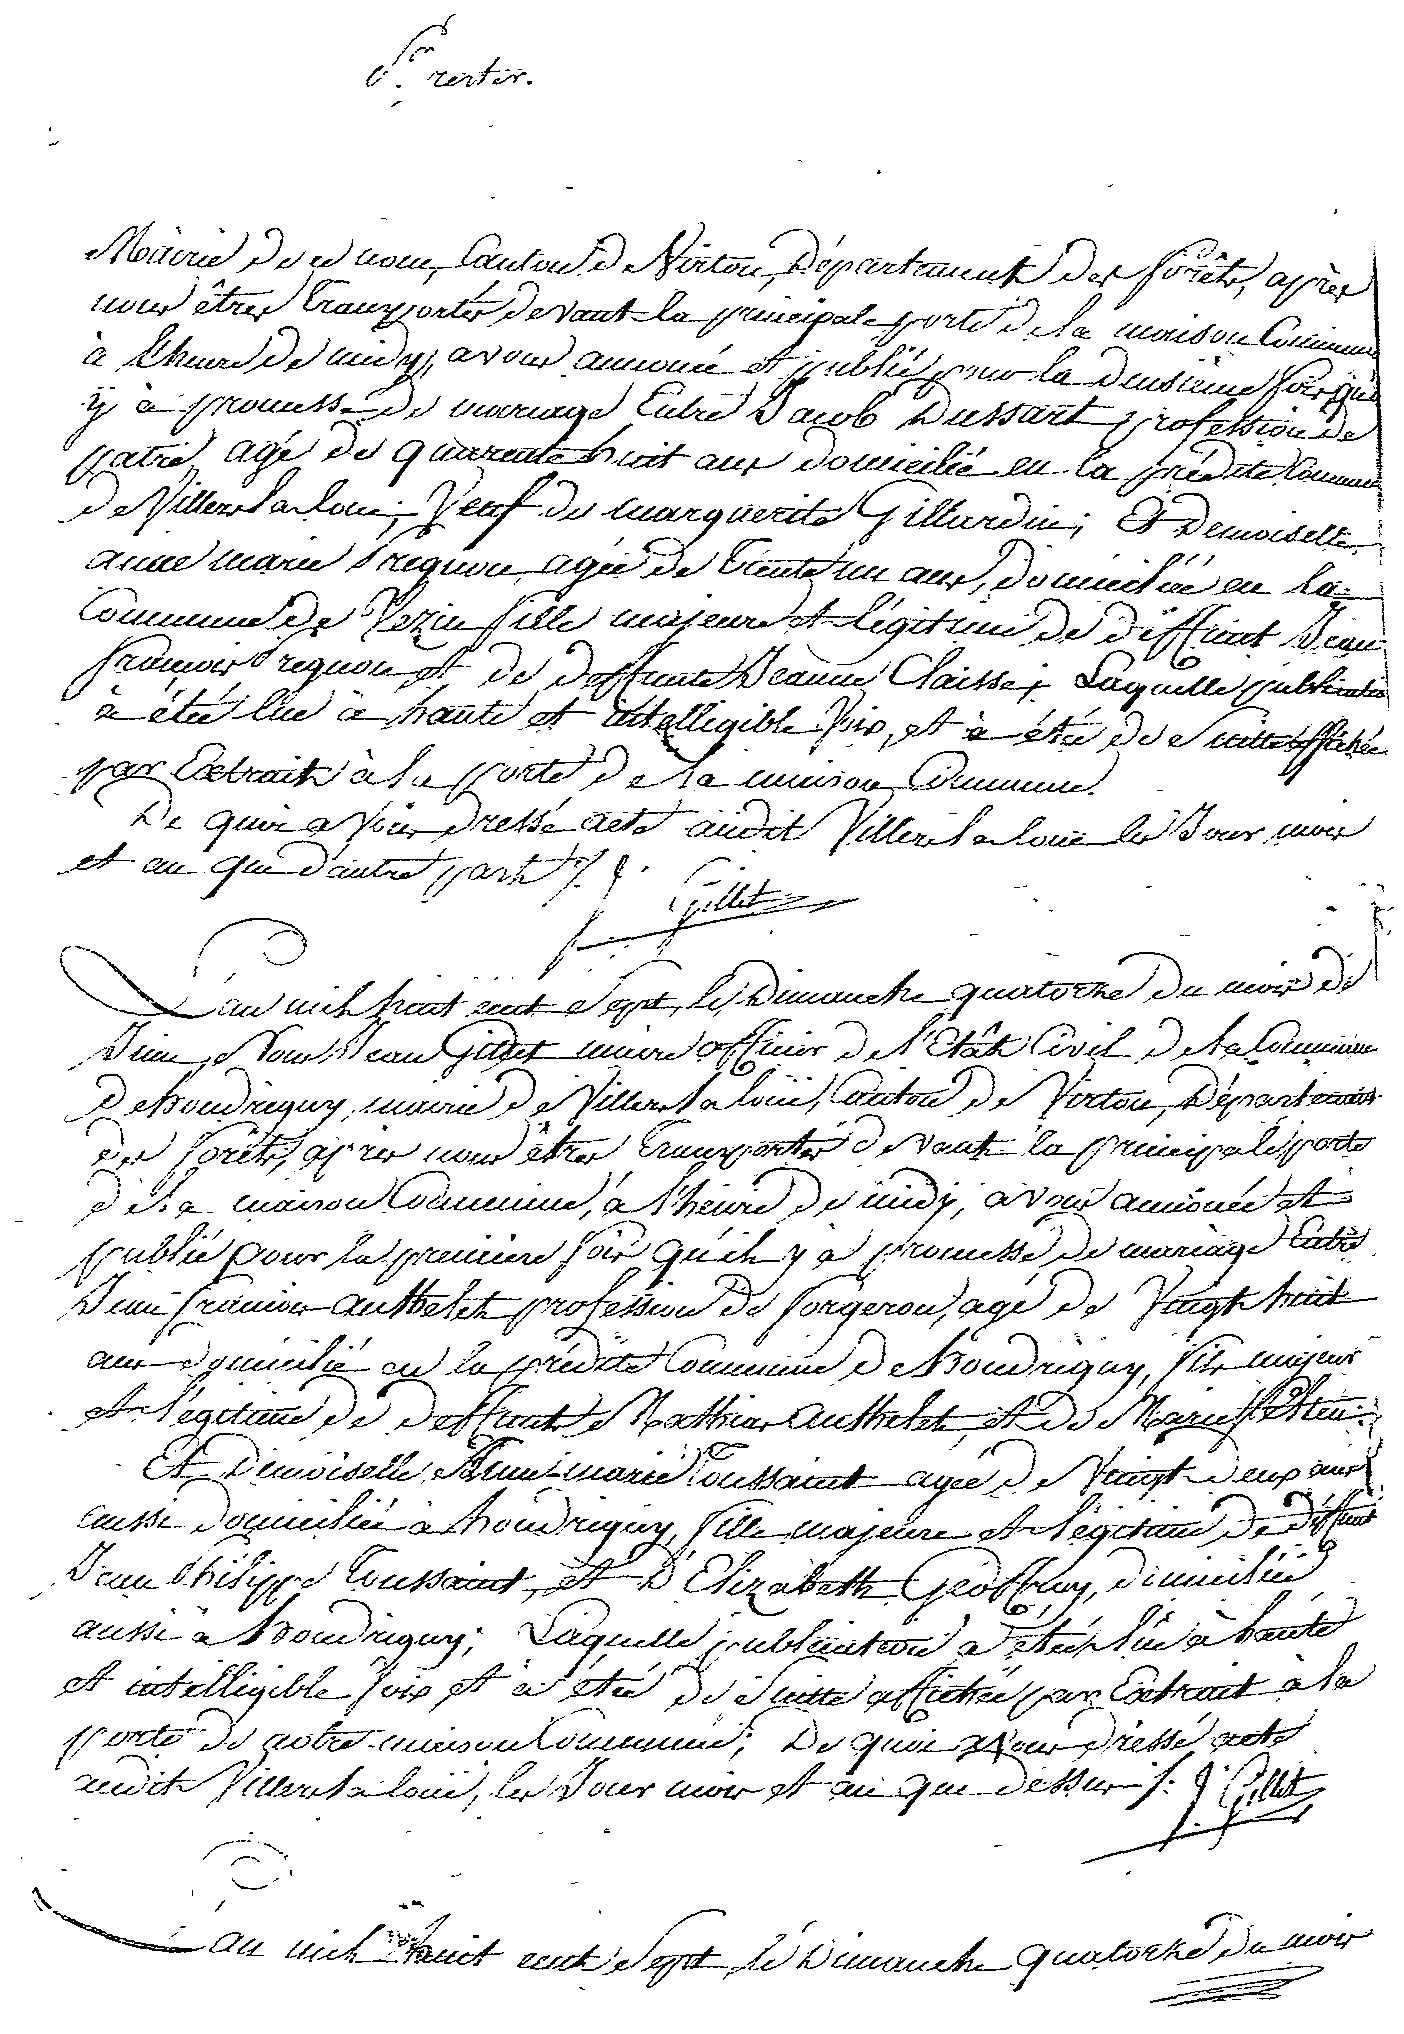 Mairie de ce nom, Canton de Virton, Département des forêts, après
nous êtres transportés devant la principale porte de la maison Commune
à L'heure de midy, avons annoncé et publié pour la deusieme fois qu'il
ÿ à promesse de mariage Entre Jacob Dussart profession de
patre, agé de quarente huit ans domicilié en la prédite Commune
de Villers la loue, Veuf de marguerite Gillardin; Et Demoiselle
anne marie Pregnon agée de trente un ans, domiciliée en la
Commune de Vezin fille majeure et légitime de deffunt Jean
françois Pregnon et de deffunte Jeanne Claisse; Laquelle publication
à étée lue à haute et intelligible Voix, et à étée de suitte affichée
par Extrait à la porte de la maison Commune.
De quoi avons dressé acte audit Villers la loue les Jour mois
et an que d'autre part ./. J. Gillet
L'an mil huit cent sept, le Dimanche quatorze du mois de
Juin, Nous Jean Gillet maire officier de l'Etât Civil de la Commune
de houdrigny, mairie de Villers la loüe, Canton de Virton, Département
des forêts, après nous êtres transportés devant la principale porte
de la maison Commune, à l'heure de midy, avons annoncée et
publiée pour la premiere fois qu'il y à promesse de mariage Entre
Jean françois authelet profession de forgeron, agé de Vingt huit
ans domicilié en la prédite Commune de houdrigny, fils majeur
et légitime de deffunt Mathias authelet, et de Marie
Et Demoiselle Anne marie Toussaint agée de Vingt deux ans
aussi domiciliée à houdrigny, fille majeure et légitime de deffunt
Jean Philippe Toussaint, et D'Elizabeth Geoffroy, domiciliée
aussi à houdrigny; Laquelle publication à étée lüe à haute
et intelligible Voix et à étée de suitte affichée par Extrait à la
porte de notre maison Commune; De quoi avons dressé acte
audit Villers la loüe, les Jour mois et an que dessus ./. J. Gillet
L'an mil huit cent sept, le Dimanche quatorze du mois